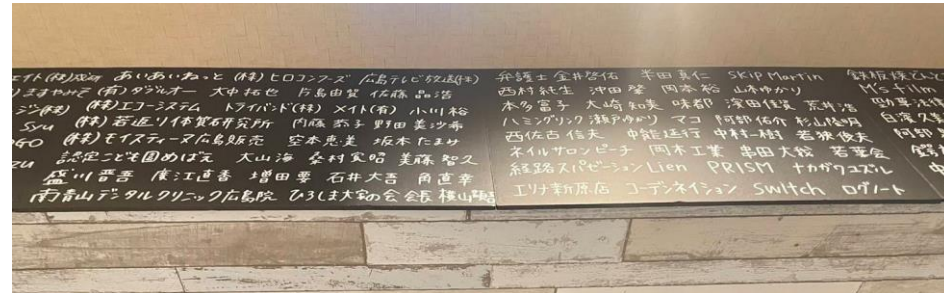 エイト(株)成研 あいあいねっと (株)ヒロコンフーズ 広島テレビ放送(株)
ますやみそ (有)ダブルオー 大中拓也 片島由賀 佐藤晶浩
ジン(株) (株)エコーシステム トライバンド(株) メイト(有) 小川裕
Syu (株)若返り体質研究所 内藤恭子 野田美沙希
GO (株)モイスティーヌ広島販売 空本恵美 坂本たまみ
zu 認定こども園めばえ 大山海 桑村実昭 美藤智久
盛川晋吾 廣江直香 増田要 石井大吾 角直幸
南青山デジタルクリニック広島院 ひろしま大家の会会長 横山
弁護士 金井啓佑 半田真仁 SKIP Martin
西村純生 沖田発 岡本裕 山本ゆかり
本多富子 大崎和美 味都 濱田佳資 荒井浩
ハミングリンク 瀬戸ゆかり マコ 阿部佑介 杉山隆明
西佐古信夫 中能延行 中村一樹 若狭俊夫
ネイルサロンピーチ 岡本工業 串田大我 若葉会
経路スパゼーションLien PRISM ナカガワユズル
エリナ新原店 コーデンネイション switch ログノート
鉄板焼どんど
M's film
阿部